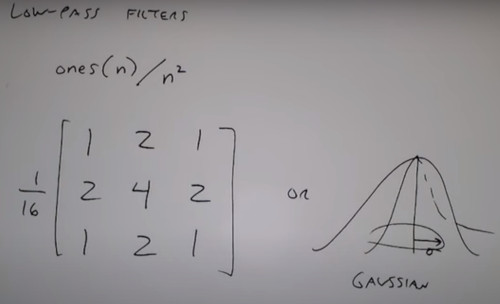 LOW-PASS FILTERS
ones(n)/n²
1 2 1
1/16 2 4 2 or
1 2 1
σ
GAUSSIAN